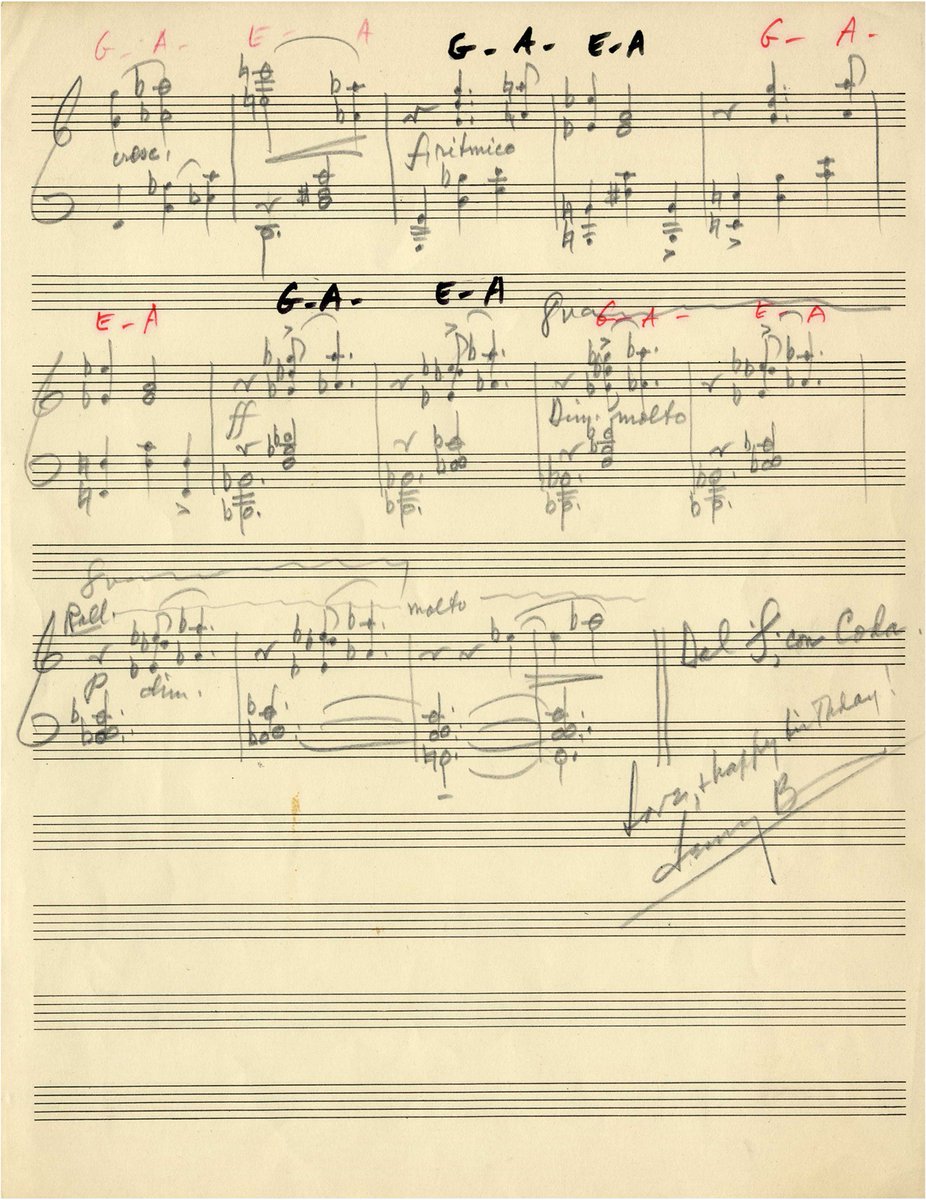 G - A - E - A G - A - E - A G - A -
cresc. f ritmico
E - A G - A - E - A 8va G - A - E - A
ff Dim. molto
8va
Rall. molto
p dim.
Del 𝄋, con Coda.
Love, + happy birthday!
Lenny B